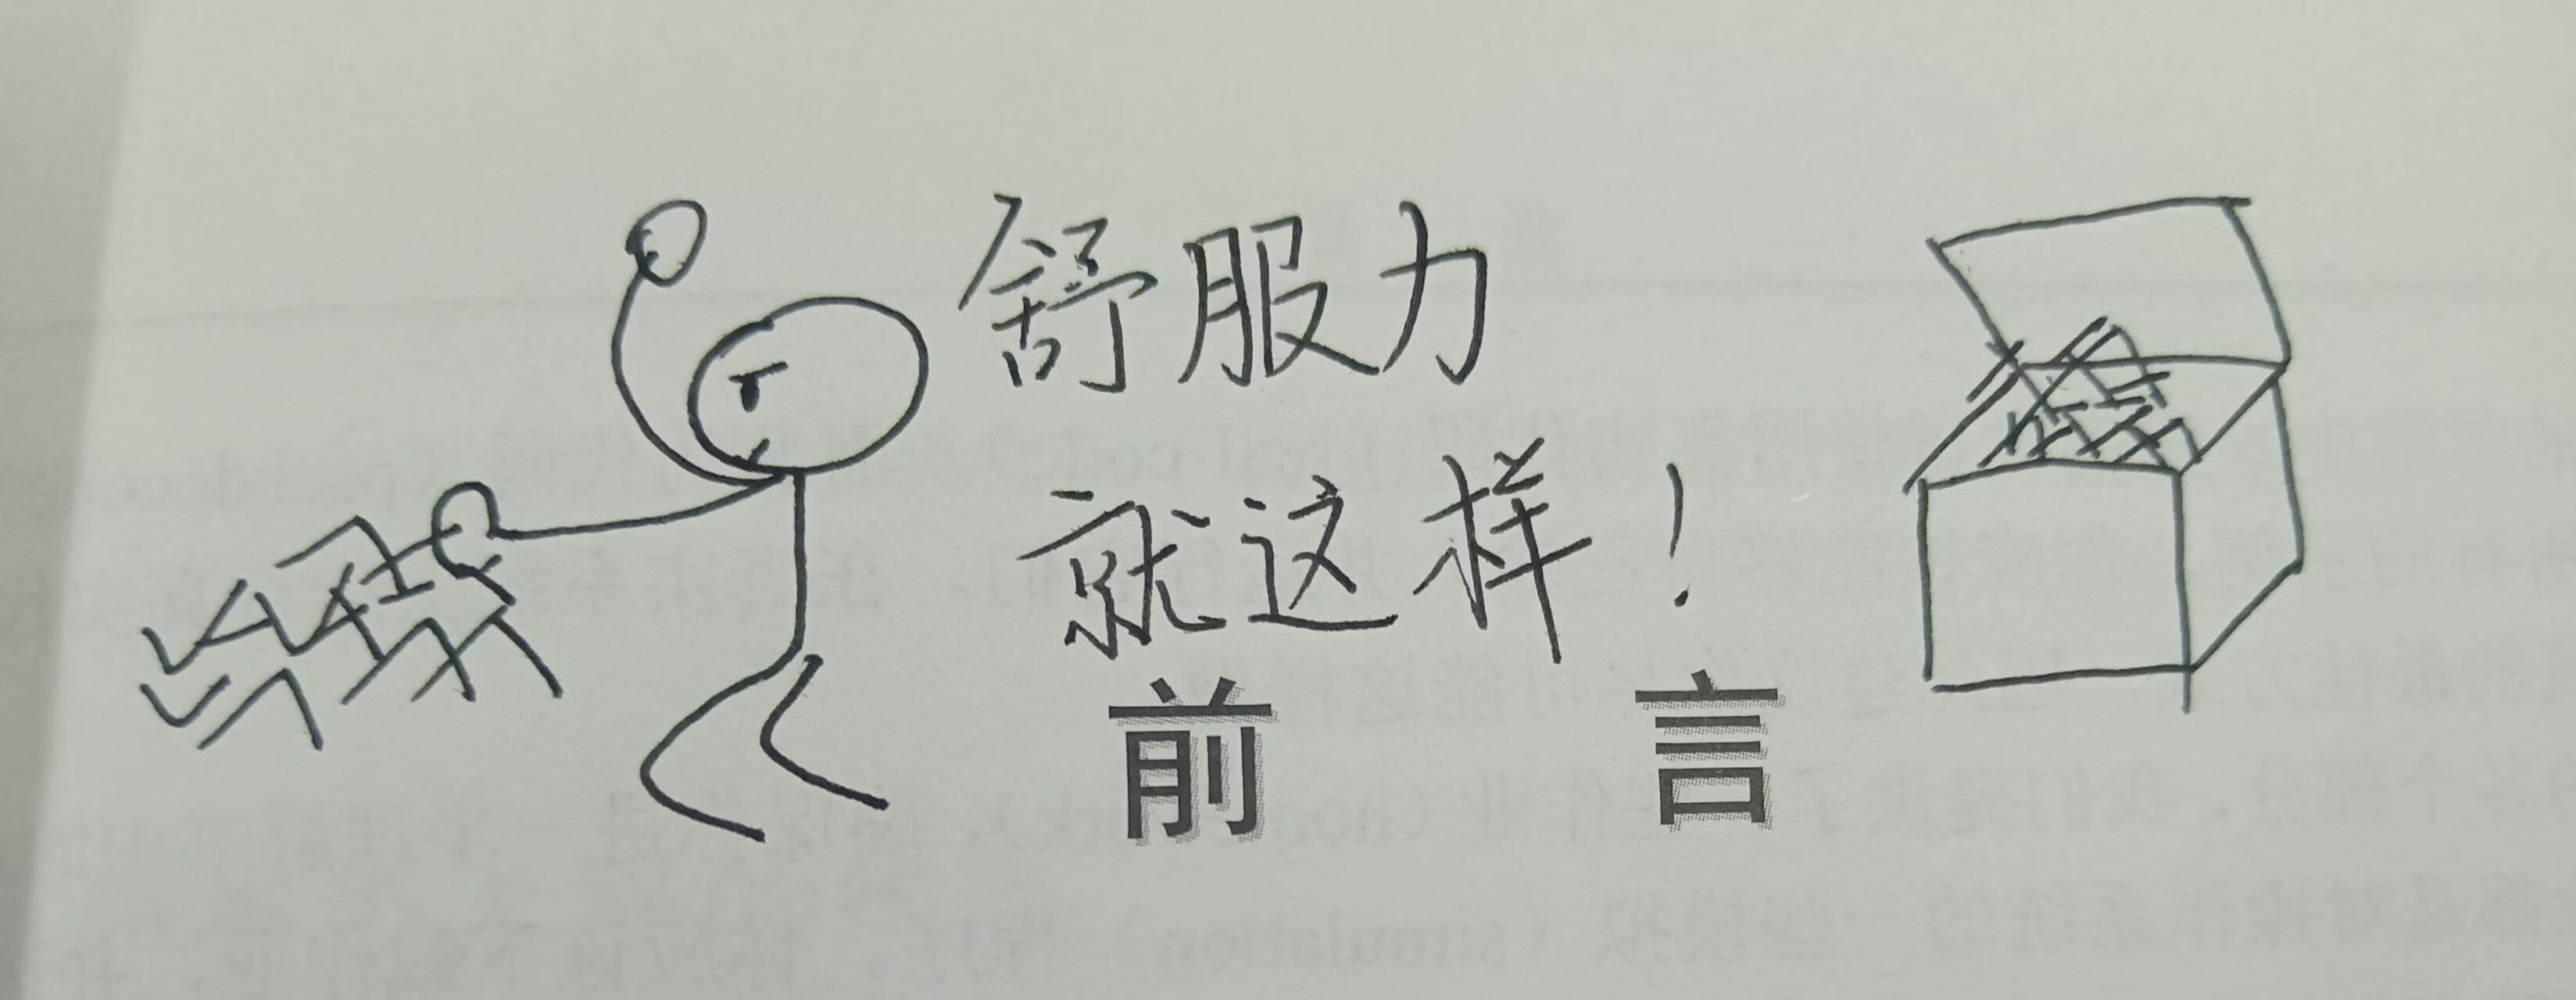 舒服力
就这样！
前 言